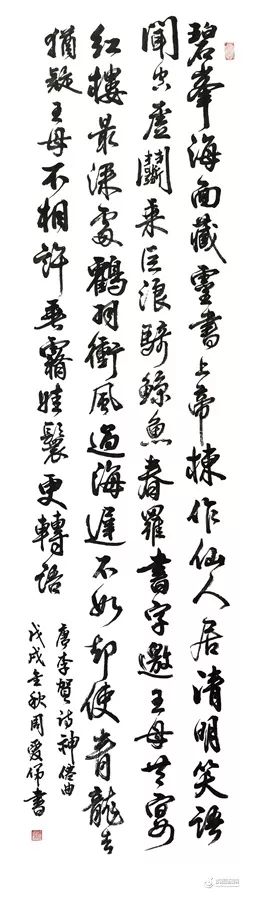 碧峯海面藏靈書上帝揀作仙人居清明笑語
聞空虛鬬乘巨浪騎鯨魚春羅書字邀王母共宴
紅樓最深處鶴羽衝風過海遲不如却使青龍去
猶疑王母不相許垂霧娃鬟更轉語
唐李賀詩神僊曲
戊戌金秋周愛書